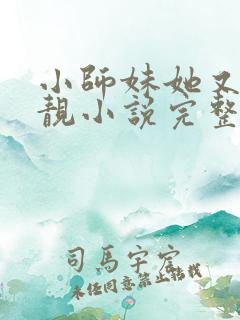 小師妹她又
靚小說完整
司馬字宏
未经同意禁止转载